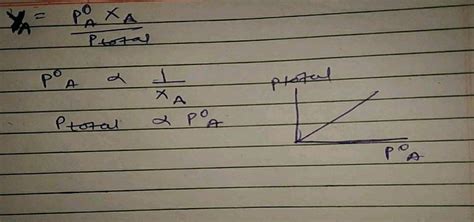 Y_A = P°_A X_A / Ptotal
P°_A ∝ 1 / x_A
Ptotal ∝ P°_A
Ptotal
P°_A